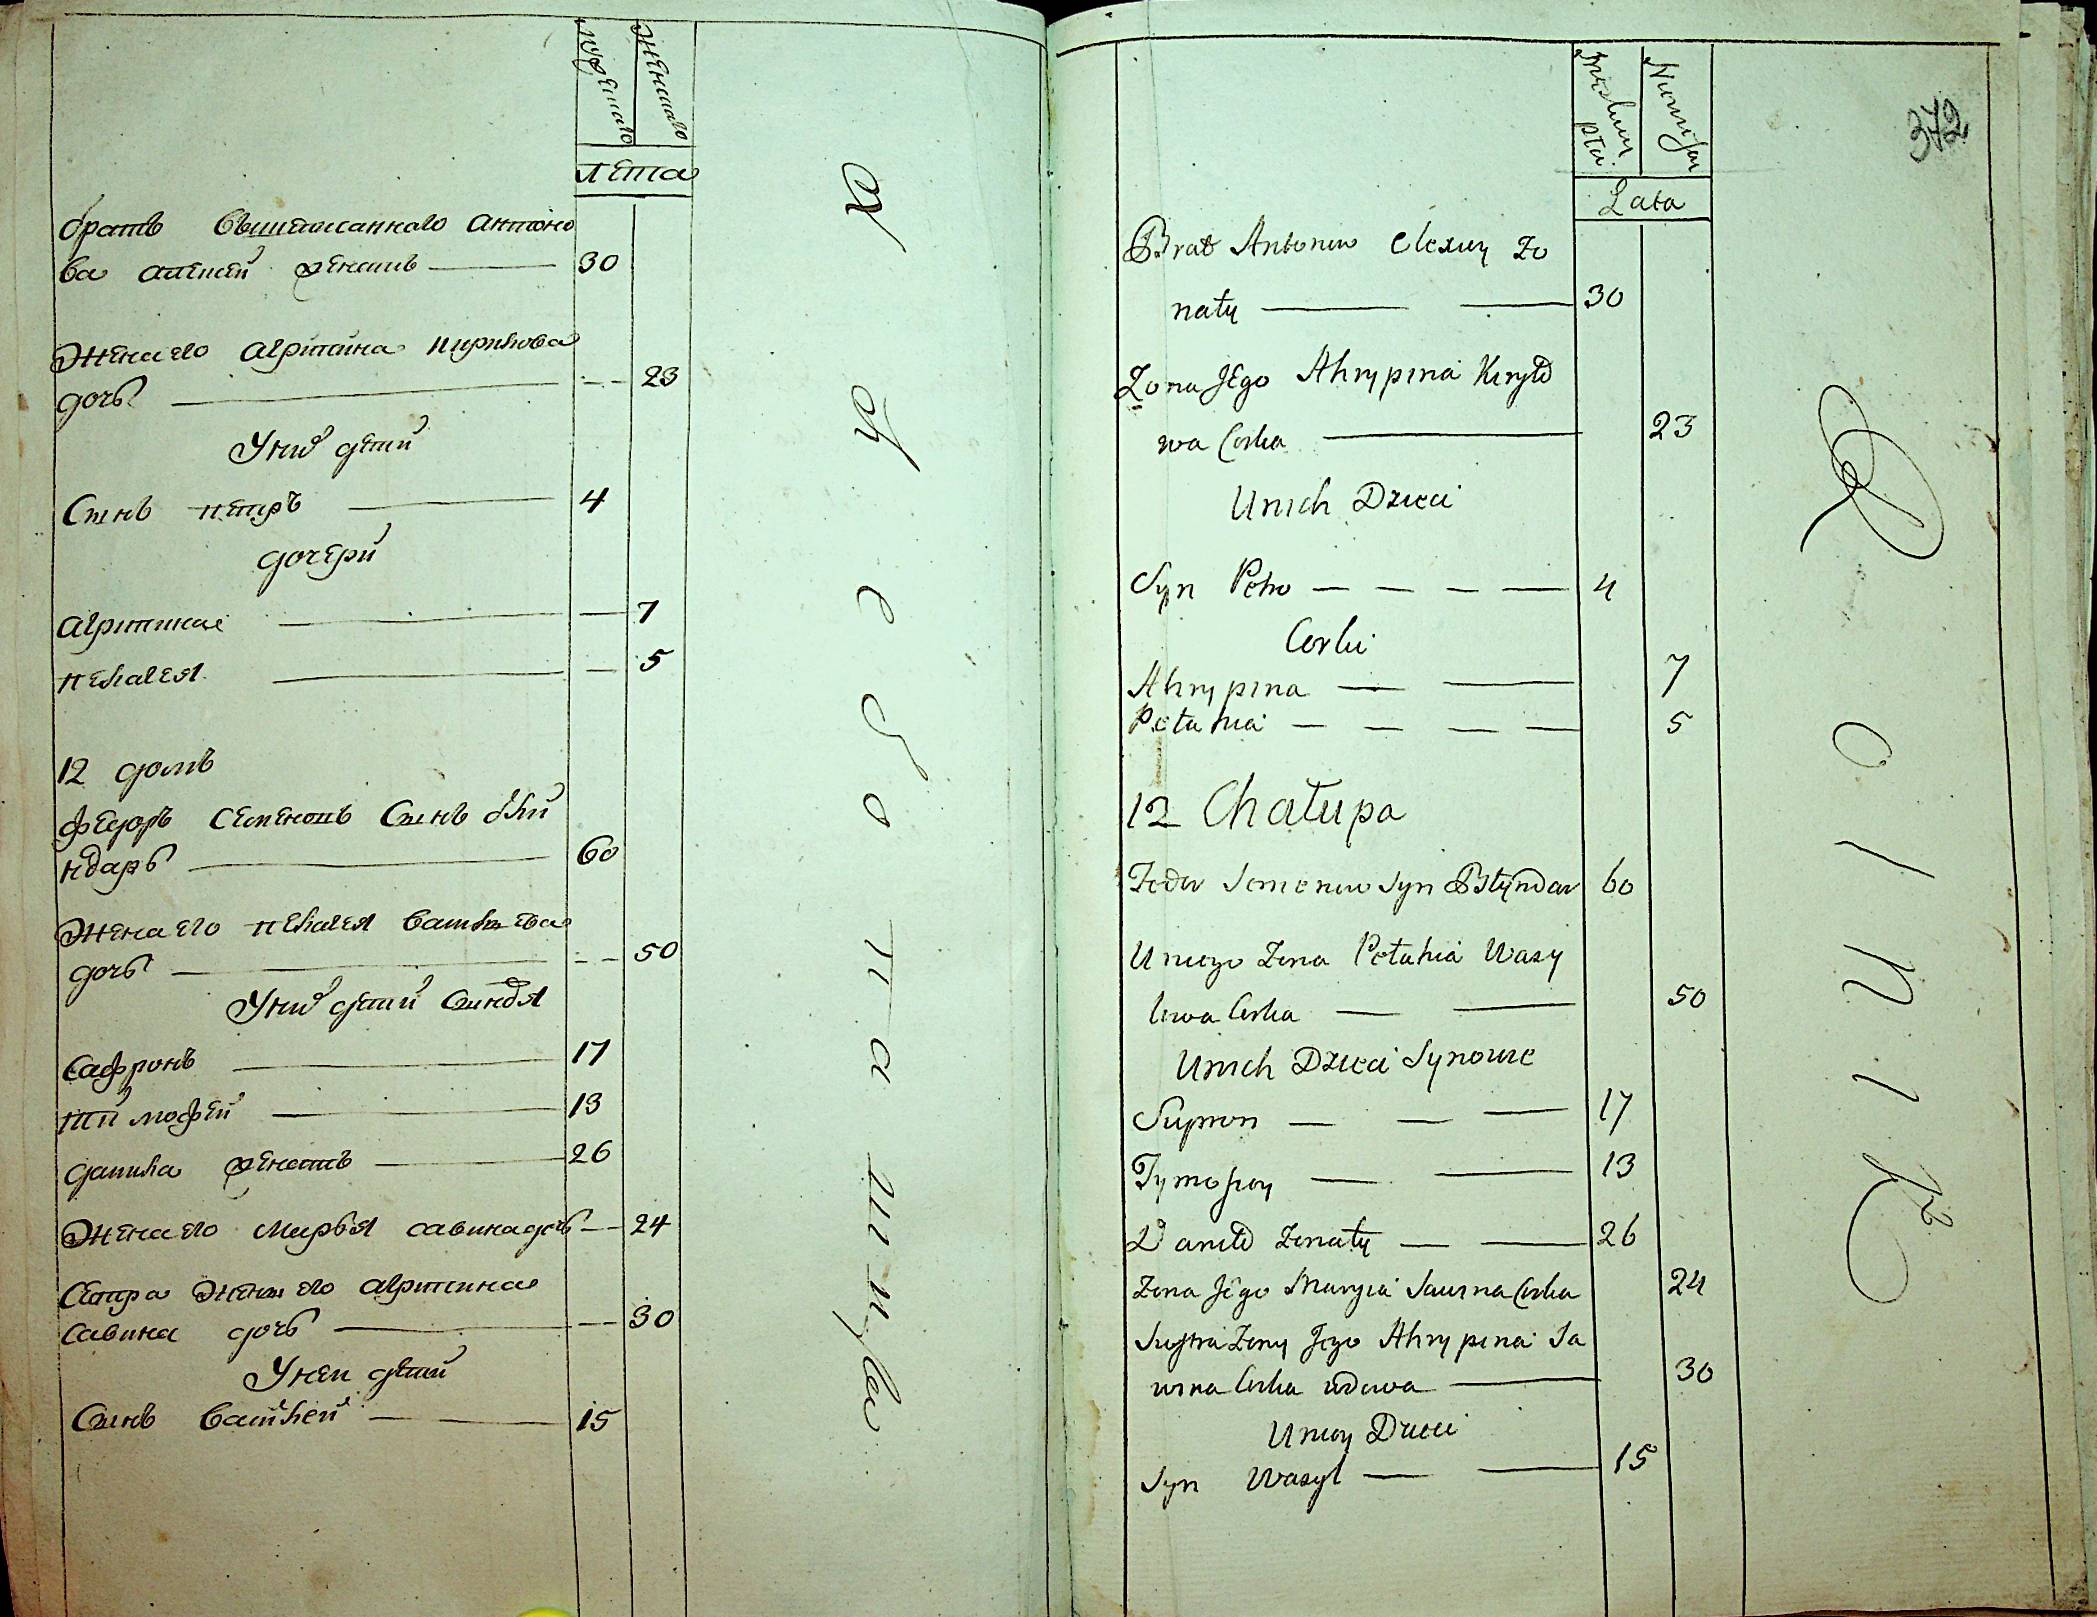 мужескаго
женскаго
лета
братъ вышеписаннаго антоно
ва алексей женатъ — 30
Жена его агрипина кирилова
дочь — 23
У них дети
Сынъ петръ — 4
дочери
агрипина — 7
пелагея — 5
12 домъ
федоръ семеновъ Сынъ бли
ндаръ — 60
Жена его пелагея василева
дочь — 50
У них дети Синовя
Сафронъ — 17
тимофей — 13
данила женатъ — 26
Жена его марья савина дочь — 24
Сестра жены его агрипина
Савина дочь — 30
У неи дети
Сынъ василей — 15
х
л
е
б
о
п
а
ш
и
ц
372
Lata
Brat Antonow Olexiy Żo
naty — 30
Żona Jego Ahrypina Kiryło
wa Corka — 23
U nich Dzieci
Syn Petro — 4
Corki
Ahrypina — 7
Pełahia — 5
12 Chałupa
Fedor Semenow Syn Błyndar 60
U niego Żona Pełahia Wasy
lowa Corka — 50
U nich Dzieci Synowie
Supron — 17
Tymofiey — 13
Daniło Żonaty — 26
Żona Jego Maryia Sawina Corka 24
Siostra Żony Jego Ahrypina Sa
wina Corka wdowa — 30
U niey Dzieci
Syn Wasyl — 15
R
o
l
n
i
k